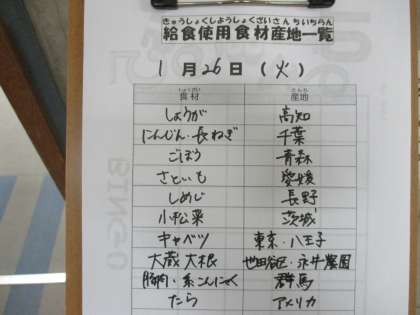 きゅうしょくしようしょくざいさんちいちらん
給食使用食材産地一覧
1月26日(火)
しょくざい さんち
食材 産地
しょうが 高知
にんじん・長ねぎ 千葉
ごぼう 青森
さといも 愛媛
しめじ 長野
小松菜 茨城
キャベツ 東京・八王子
大蔵大根 世田谷区・永井農園
豚肉・糸こんにゃく 群馬
たら アメリカ
BINGO